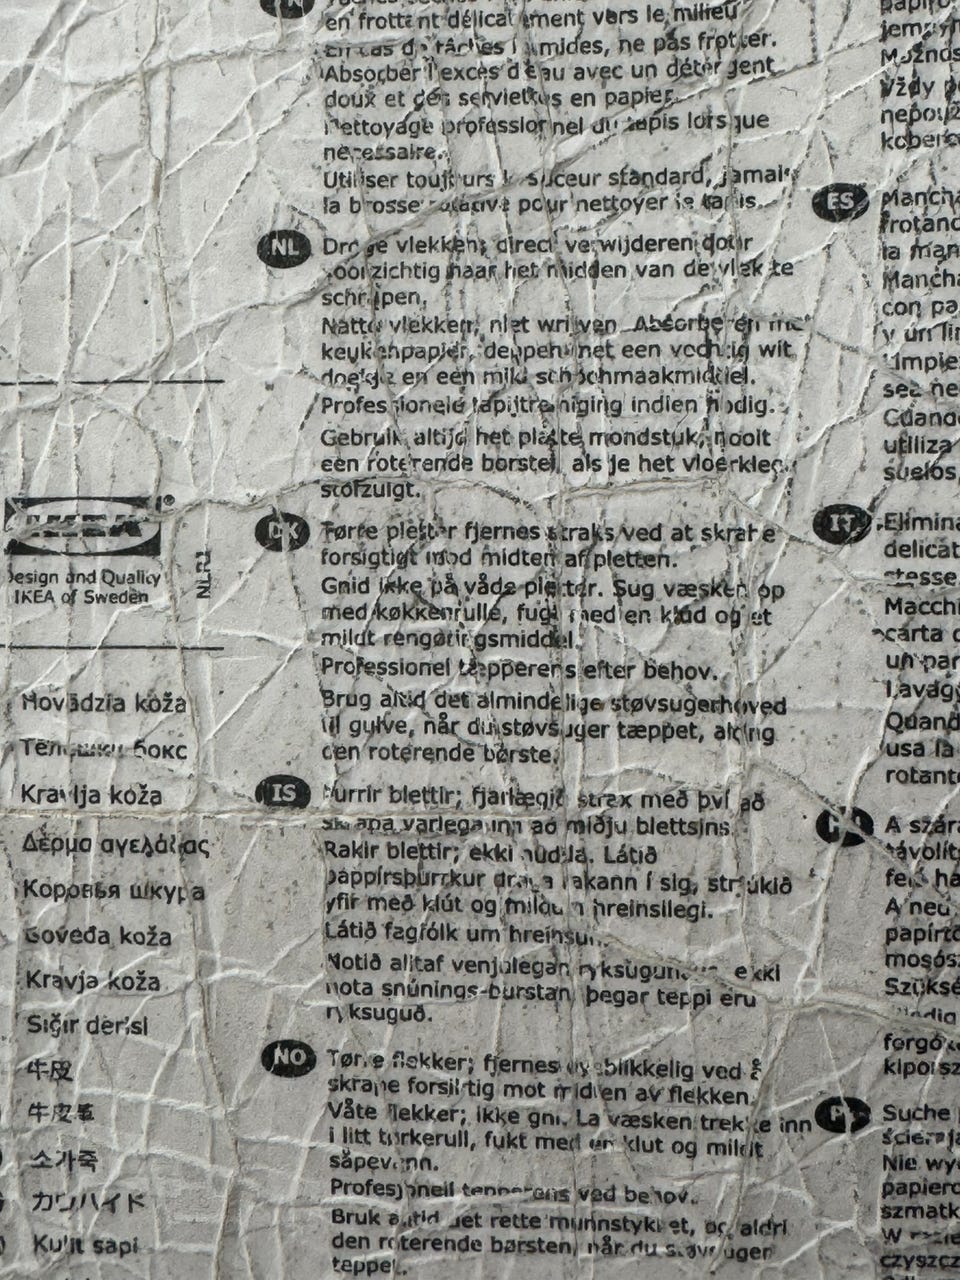 en frottant délicatement vers le milieu
En cas de tâches humides, ne pas frotter.
Absorber l'excès d'eau avec un détergent
doux et des serviettes en papier.
Nettoyage professionnel du tapis lorsque
nécessaire.
Utiliser toujours le suceur standard, jamais
la brosse rotative pour nettoyer le tapis.
NL
Droge vlekken; direct verwijderen door
voorzichtig naar het midden van de vlek te
schrapen.
Natte vlekken; niet wrijven. Absorberen met
keukenpapier, deppen met een vochtig wit
doekje en een mild schoonmaakmiddel.
Professionele tapijtreiniging indien nodig.
Gebruik altijd het platte mondstuk, nooit
een roterende borstel, als je het vloerkleed
stofzuigt.
DK
Tørre pletter fjernes straks ved at skrabe
forsigtigt mod midten af pletten.
Gnid ikke på våde pletter. Sug væsken op
med køkkenrulle, fugt med en klud og et
mildt rengøringsmiddel.
Professionel tæpperens efter behov.
Brug altid det almindelige støvsugerhoved
til gulve, når du støvsuger tæppet, aldrig
den roterende børste.
IS
Þurrir blettir; fjarlægið strax með því að
skrapa varlega inn að miðju blettsins.
Rakir blettir; ekki nudda. Látið
pappírsþurrkur draga rakann í sig, strjúkið
yfir með klút og mildum hreinsilegi.
Látið fagfólk um hreinsun.
Notið alltaf venjulegan ekki
nota snúnings-burstan, þegar teppi eru
ryksuguð.
NO
Tørre flekker; fjernes øyeblikkelig ved å
skrape forsiktig mot midten av flekken.
Våte flekker; ikke gni. La væsken trekke inn
i litt tørkerull, fukt med en klut og mildt
såpevann.
Profesjonell tepperens ved behov.
Bruk alltid det rette munnstykket, og aldri
den roterende børsten, når du støvsuger
teppet.
IKEA®
Design and Quality
IKEA of Sweden
Hovädzia koža
Телешки бокс
Kravlja koža
Δέρμα αγελάδας
Коровья шкура
Goveđa koža
Kravja koža
Sığır derisi
牛皮
牛皮革
소가죽
カウハイド
Kulit sapi
jemný
Možnos
Vždy
koberc
ES
Mancha
frotand
la man
Mancha
con pa
y un
Limpie
sea ne
Cuando
utiliza
suelos,
IT
Elimina
delicat
stesse
Macchi
carta d
un par
Lavag
Quand
usa la
rotant
A szára
távolít
A ned
papírtö
mosósz
Szüksé
forgó
Suche
Nie wy
papiero
szmatk
czyszcz